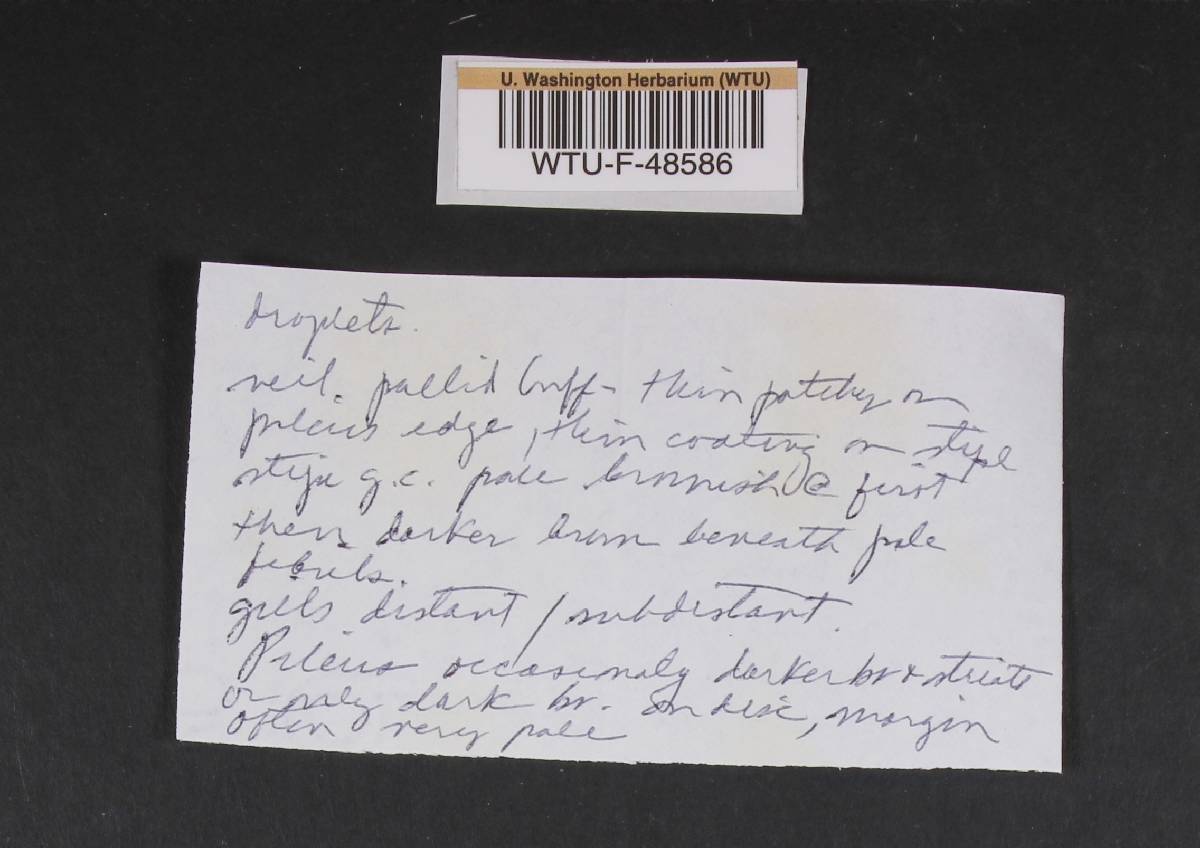 U. Washington Herbarium (WTU)
WTU-F-48586
droplets.
veil. pallid buff - thin patchy on
pileus edge, thin coating on stipe
stipe g.c. pale brownish @ first
then darker brown beneath pale
fibrils.
gills distant / subdistant.
Pileus occasionaly darker br & striate
or only dark br. on disc, margin
often very pale